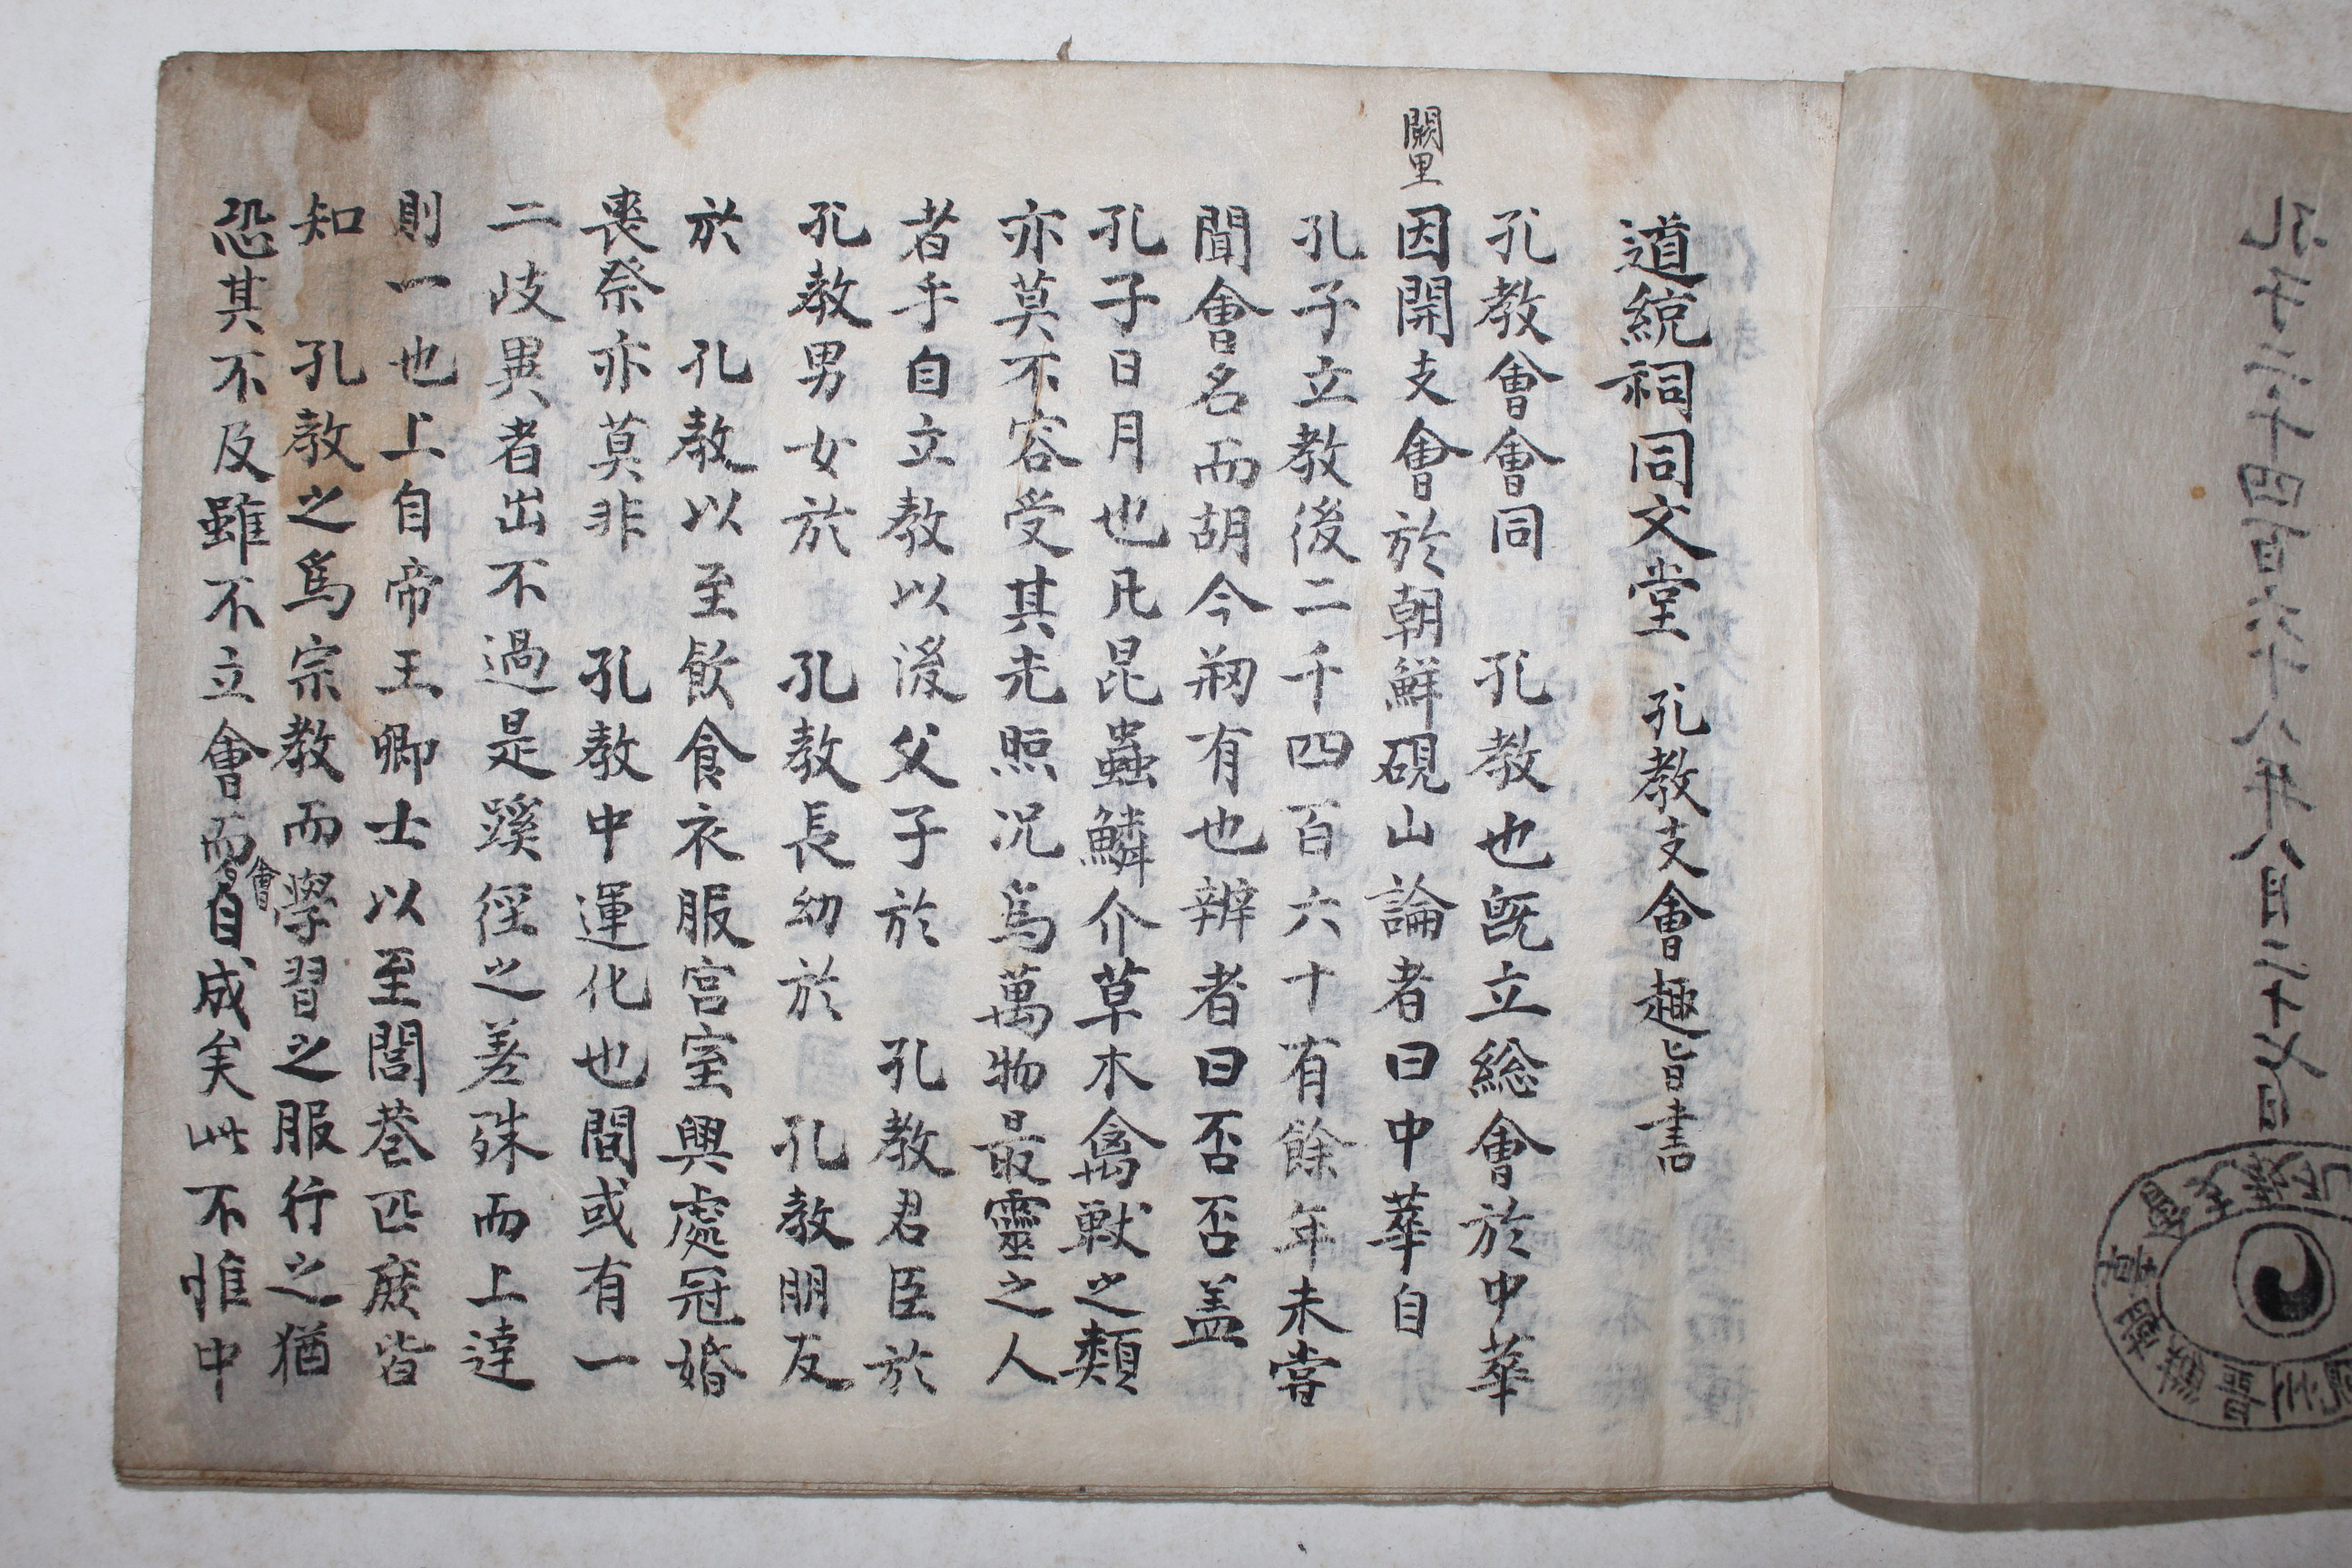 孔子二千四百六十八年八月二十七日
道統祠同文堂 孔教支會趣旨書
孔教會會同 孔教也旣立総會於中華
闕里因開支會於朝鮮硯山論者曰中華自
孔子立教後二千四百六十有餘年未甞
聞會名而胡今刱有也辨者曰否否盖
孔子日月也凡昆蟲鱗介草木禽獣之類
亦莫不容受其光照况爲萬物最靈之人
者乎自立教以後父子於 孔教君臣於
孔教男女於 孔教長幼於 孔教朋友
於 孔教以至飮食衣服宮室興處冠婚
喪祭亦莫非 孔教中運化也間或有一
二歧異者出不過是蹊徑之差殊而上達
則一也上自帝王卿士以至閭巷匹庶皆
知 孔教之爲宗教而學習之服行之猶
恐其不及雖不立會而會自成矣此不惟中